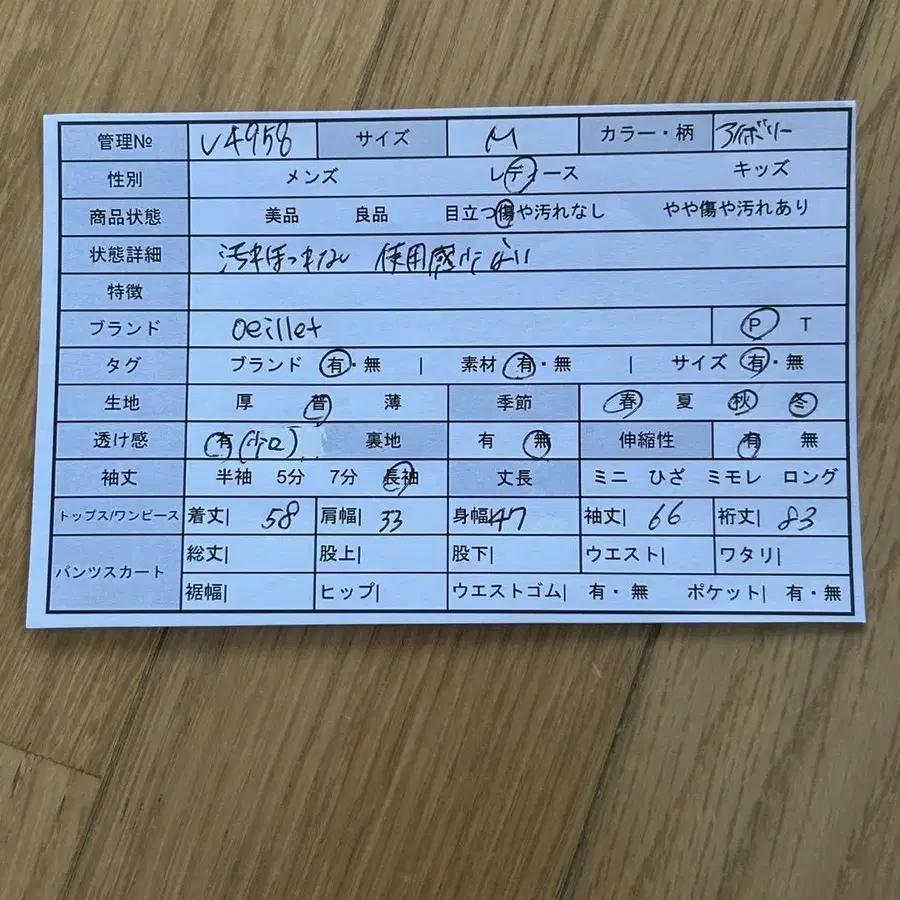 管理№ V4958 サイズ M カラー・柄 アイボリー
性別 メンズ レディース キッズ
商品状態 美品 良品 目立つ傷や汚れなし やや傷や汚れあり
状態詳細 汚れほつれなし 使用感少ない
特徴
ブランド Oeillet P T
タグ ブランド 有・無 | 素材 有・無 | サイズ 有・無
生地 厚 普 薄 季節 春 夏 秋 冬
透け感 有 裏地 有 無 伸縮性 有 無
袖丈 半袖 5分 7分 長袖 丈長 ミニ ひざ ミモレ ロング
トップス/ワンピース 着丈| 58 肩幅| 33 身幅 47 袖丈| 66 裄丈| 83
パンツスカート 総丈| 股上| 股下| ウエスト| ワタリ|
裾幅| ヒップ| ウエストゴム| 有・無 ポケット| 有・無